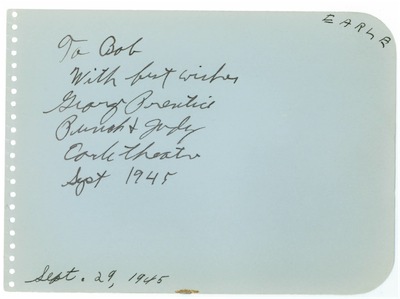 EARLE
To Bob
With best wishes
George Prentice
Punch & Judy
Cork theatre
Sept 1945
Sept. 29, 1945